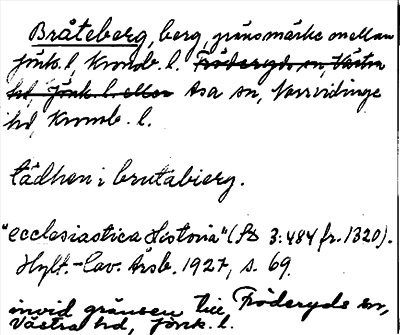 Bråteberg, berg, gränsmärke mellan
Jönk. l, Kronob. l. Fröderyds sn, Västra
hd, Jönk. l. eller Asa sn, Norrvidinge
hd, Kronob. l.
tädhen i brutabierg.
"Ecclesiastica Historia" (SD 3:484 fr. 1320).
Hylt.-Cav. Årsb. 1927, s. 69.
invid gränsen till Fröderyds sn,
Västra hd, Jönk. l.